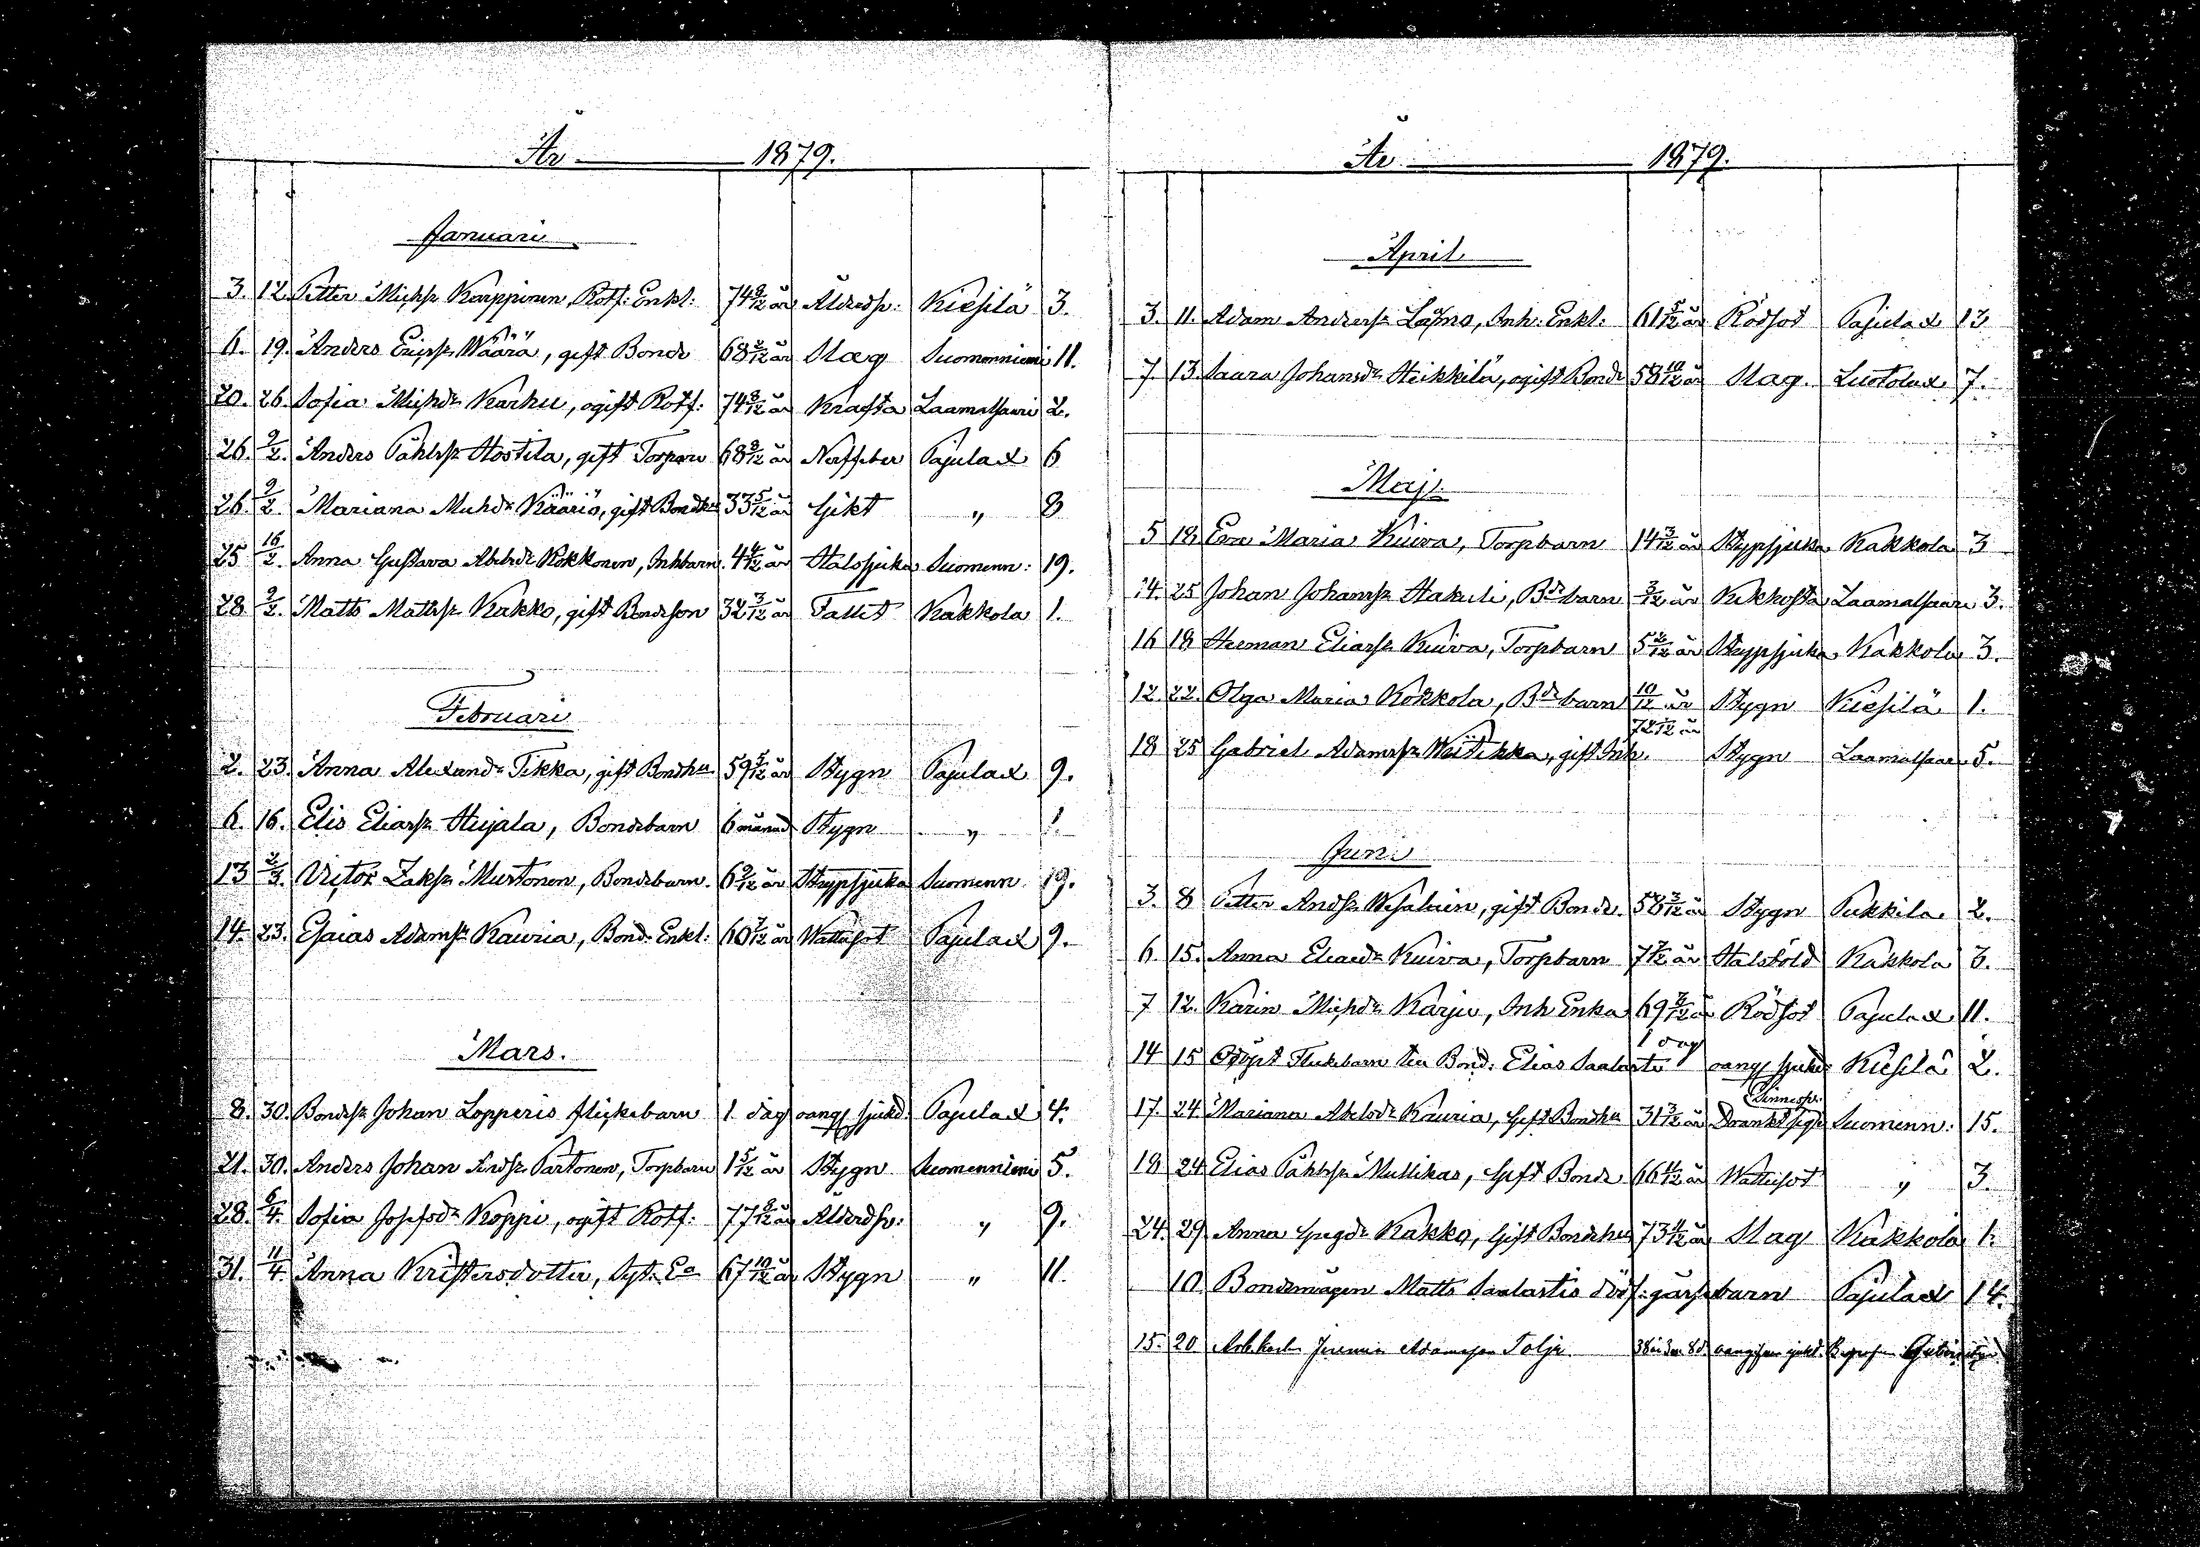 År 1879.
Januari
3. 12. Petter Michsr Karppinen, Rotf: Enkl: 74 8/12 år Ålderdsv: Kiesilä 3.
6. 19. Anders Ericsr Wäärä, gift Bonde 68 2/12 år Slag Suomenniemi 11.
20. 26. Sofia Michdr Karhu, ogift Rotf: 74 8/12 år Kräfta Laamatsaari 2.
26. 9/2. Anders Påhlsr Hostila, gift Torpare 68 8/12 år Nerffeber Pajulax 6
26. 9/2. Mariana Michdr Kääriä, gift Bondhu 33 5/12 år Gikt " 8
25 16/2. Anna Gustava Abelsdr Kokkonen, Inhbarn. 4 4/12 år Halssjuka Suomenn: 19.
28. 9/2. Matts Mattsr Kakko, gift Bondeson 32 3/12 år Fallit Kakkola 1.
Februari
2. 23. Anna Alexandr Tikka, gift Bondhu 59 5/12 år Stygn Pajulax 9.
6. 16. Elis Eliassr Hujala, Bondebarn 6 månad Stygn " 1.
13 2/3. Victor Zaksr Murtonen, Bondebarn. 6 9/12 år Strypsjuka Suomenn 19.
14. 23. Esaias Adamsr Kauria, Bond: Enkl: 60 7/12 år Wattusot Pajulax 9.
Mars.
8. 30. Bondesr Johan Lopperis flickebarn 1. dag oangf sjukd. Pajulax 4.
21. 30. Anders Johan Andsr Partonen, Torpbarn 1 5/12 år Stygn Suomenniemi 5.
28. 6/4. Sofia Josefsdr Koppi, ogift Rotf: 77 8/12 år Ålderdsv: " 9.
31. 11/4. Anna Kristersdotter, Syt: Ea 67 10/12 år Stygn " 11.
År 1879.
April.
3. 11. Adam Anderssr Inh: Enkl: 61 5/12 år Rödsot Pajulax 13
7. 13. Laura Johansdr Heikkilä, ogift Bonde 58 10/12 år Slag. Luotolax. 7.
Maj.
5 18. Eva Maria Kuiva, Torpbarn 14 3/12 år Strypsjuka Kakkola 3
14. 25 Johan Johanssr Hakuli, Bde barn 3/12 år Kikhosta Laamatsaari 3.
16 18 Herman Eliassr Kuiva, Torpbarn 5 2/12 år Strypsjuka Kakkola 3.
12. 22. Olga Maria Kokkola, Bde barn 10/12 år Stygn Kiesilä 1.
18 25 Gabriel Adamssr Weitikka, gift Inh. 72 /12 år Stygn Laamatsaari 5.
Juni
3. 8 Petter Andsr Wesalain, gift Bonde. 58 3/12 år Stygn Pukkila. 2.
6. 15. Anna Eliaedr Kuiva, Torpbarn 7 7/12 år Halsböld Kakkola 3.
7 12. Karin Michdr Karju, Inh Enka 69 7/12 år Rödsot Pajulax 11.
14 15 Odöpt Flickebarn till Bond: Elias Saalasti 1 dag oangf sjukd: Kiesilä 2.
17. 24. Mariana Abelsdr Kauria, Gift Bondhu 31 7/12 år Suomenn: 15.
18 24 Elias Påhlsr Mullikas, Gift Bonde 66 4/12 år Wattusot " 3.
24. 29. Anna Gregdr Kakko, Gift Bondehu 73 4/12 år Slag Kakkola 1.
10. Bondemågen Matts Saalastis dödf: gårse barn Pajulax 14.
15. 20. Jeremia Adamsson Tolje 38 år 3 m 8 d. oangifven sjukd. Begrafven